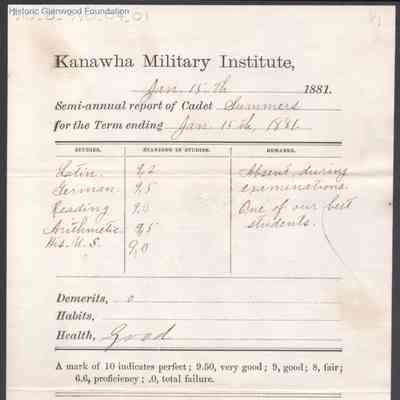 Historic Glenwood Foundation
Kanawha Military Institute,
Jan. 15th 1881.
Semi-annual report of Cadet Summers
for the Term ending Jan. 15th, 1881.
STUDIES. STANDING IN STUDIES. REMARKS.
Latin. 9,2 Absent during
German. 9,5 examinations.
Reading 9,0 One of our best
Arithmetic 9,5 students.
His. U. S. 9,0
Demerits, 0
Habits,
Health, Good
A mark of 10 indicates perfect; 9.50, very good; 9, good; 8, fair;
6.6, proficiency; .0, total failure.